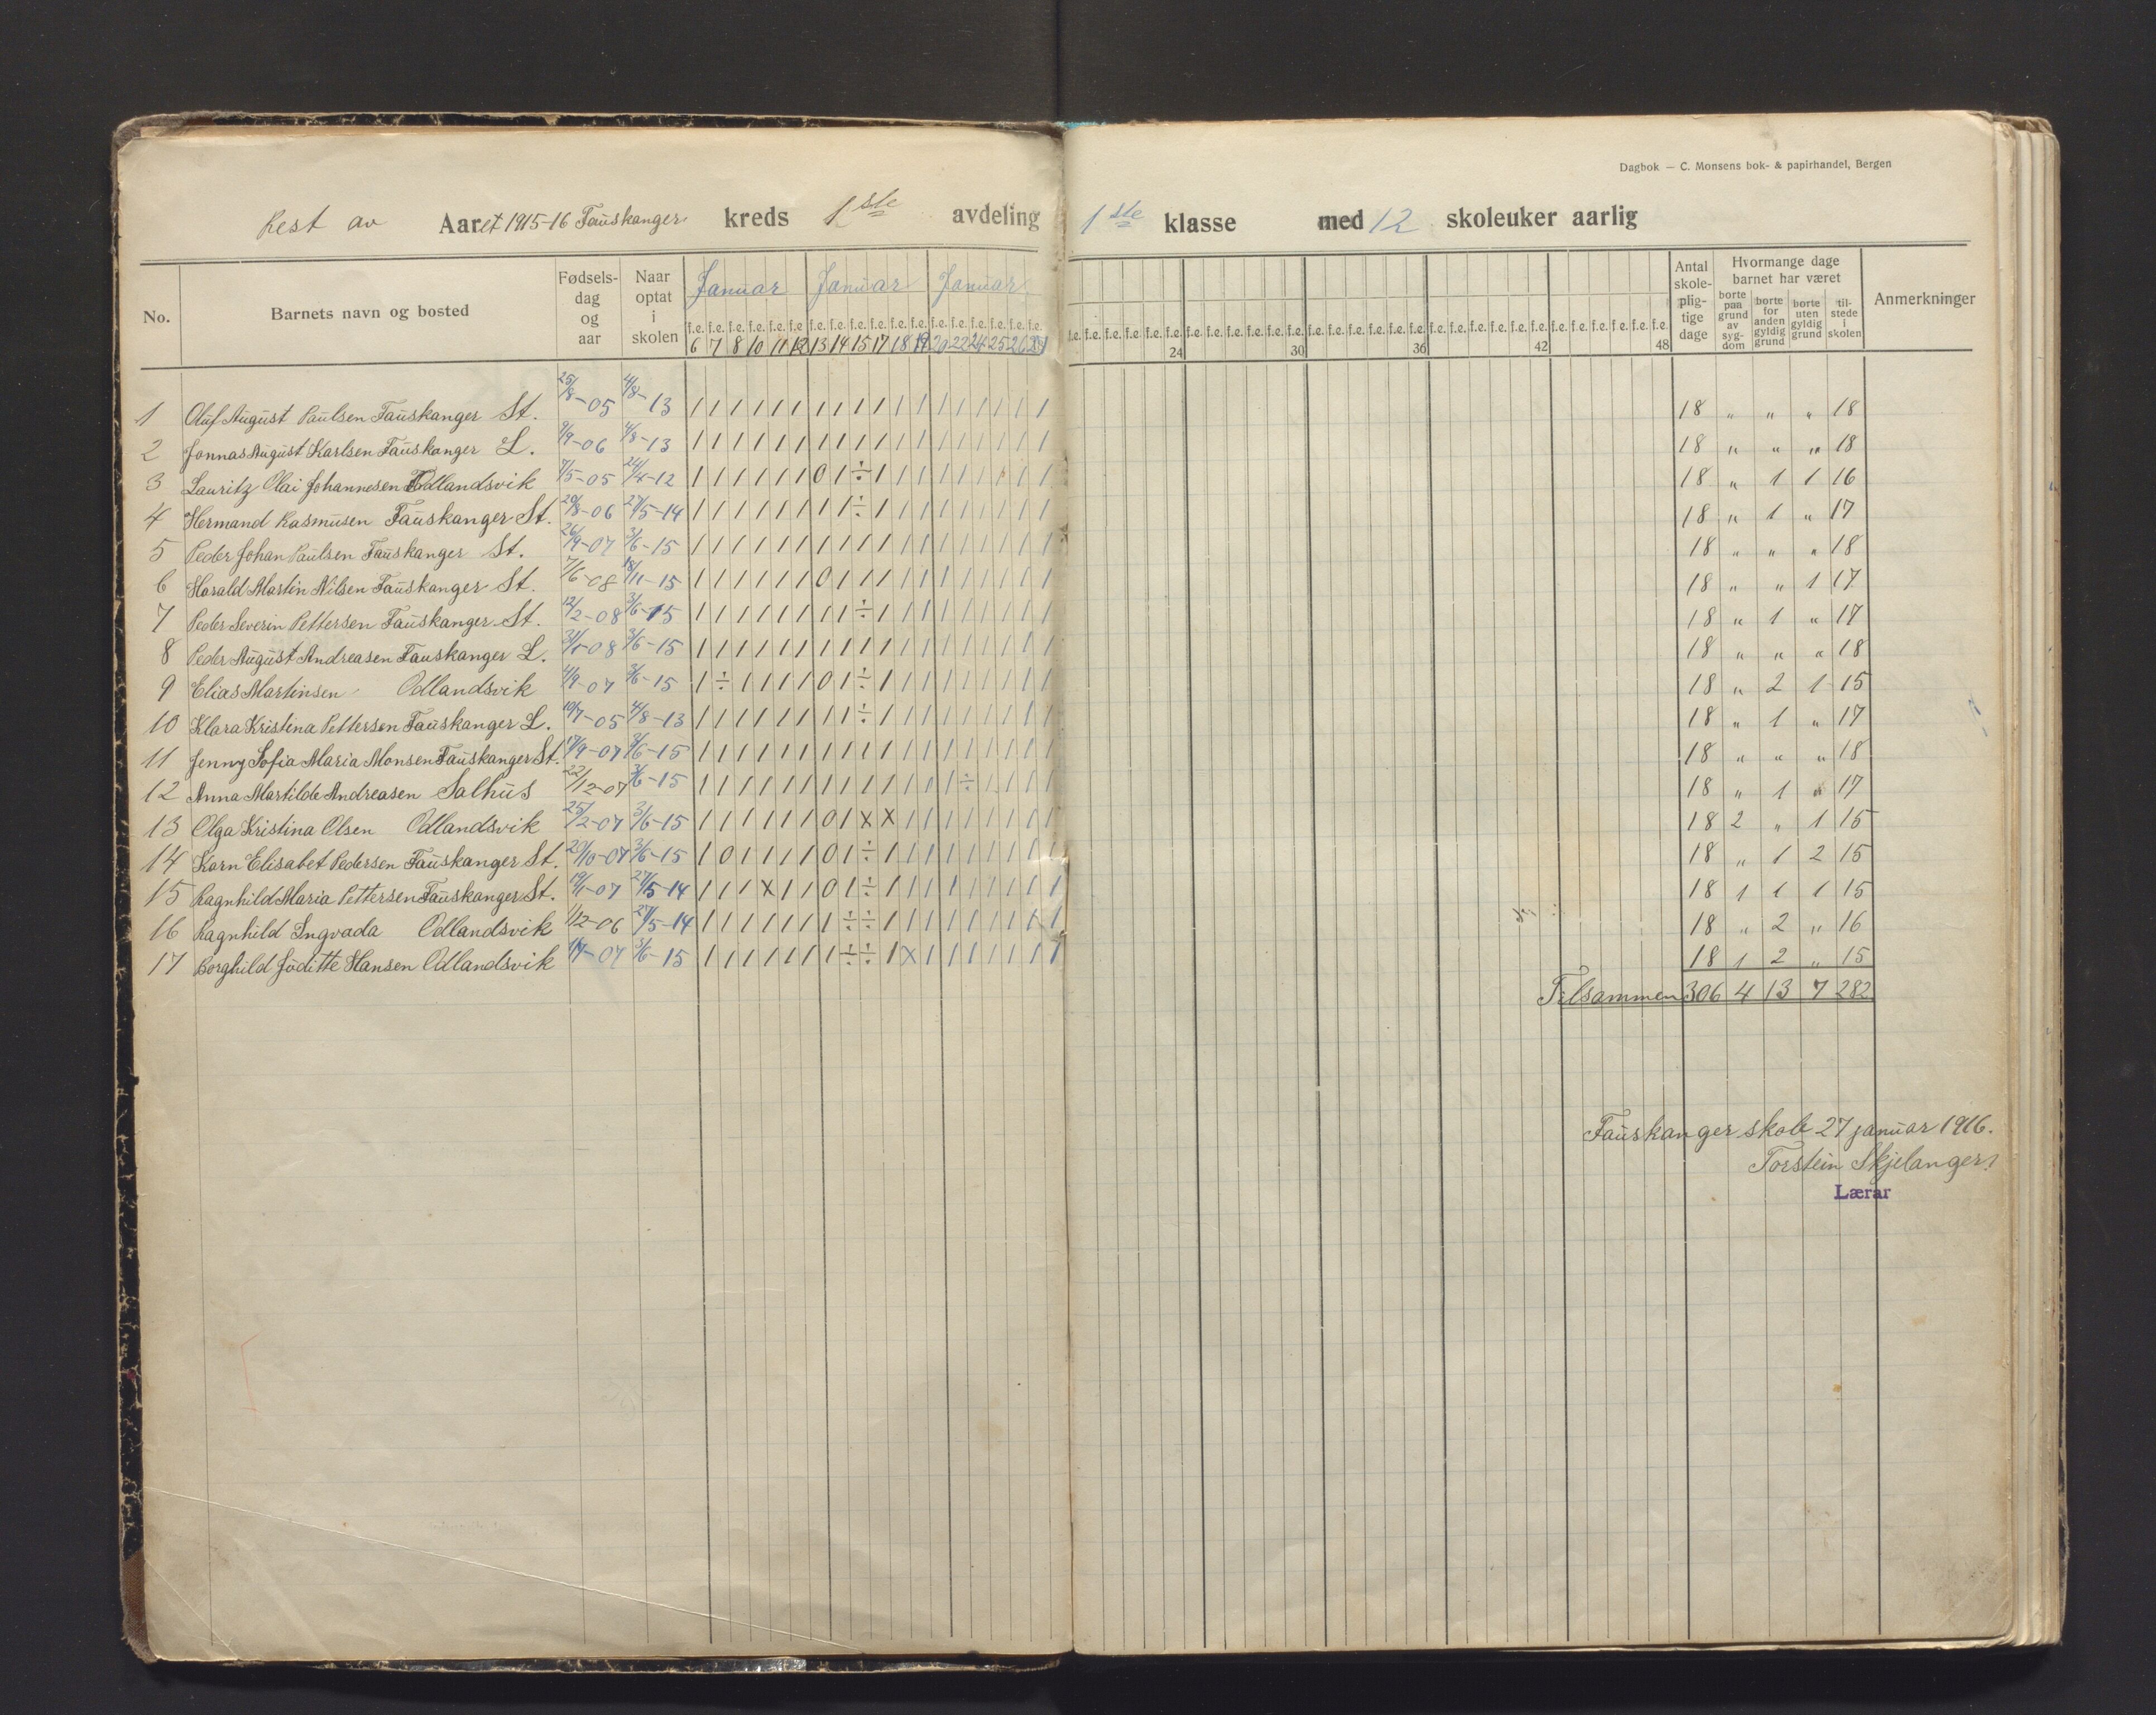 Dagbok — C. Monsens bok- & papirhandel, Bergen
Rest av Aaret 1915-16 Fauskanger kreds 1ste avdeling 1ste klasse med 12 skoleuker aarlig
No. Barnets navn og bosted Fødsels-dag og aar Naar optat i skolen Januar Januar Januar Antal skole-plig-tige dage Hvormange dage barnet har været Anmerkninger
borte paa grund av syg-dom borte for anden gyldig grund borte uten gyldig grund til-stede i skolen
f.e. f.e. f.e. f.e. f.e. f.e. f.e. f.e. f.e. f.e. f.e. f.e. f.e. f.e. f.e. f.e. f.e. f.e.
6 7 8 10 11 12 13 14 15 17 18 19 20 22 24 25 26 27 24 30 36 42 48
1 Oluf August Paulsen Fauskanger St. 25/8-05 4/8-13 1 1 1 1 1 1 1 1 1 1 1 1 1 1 1 1 1 1 18 " " " 18
2 Jonnas August Karlsen Fauskanger L. 9/9-06 4/8-13 1 1 1 1 1 1 1 1 1 1 1 1 1 1 1 1 1 1 18 " " " 18
3 Lauritz Olai Johannesen Odlandsvik 7/5-05 24/4-12 1 1 1 1 1 1 0 1 ÷ 1 1 1 1 1 1 1 1 1 18 " 1 1 16
4 Hermand Rasmusen Fauskanger St. 20/8-06 27/5-14 1 1 1 1 1 1 1 1 ÷ 1 1 1 1 1 1 1 1 1 18 " 1 " 17
5 Peder Johan Paulsen Fauskanger St. 26/9-07 3/6-15 1 1 1 1 1 1 1 1 1 1 1 1 1 1 1 1 1 1 18 " " " 18
6 Harald Martin Nilsen Fauskanger St. 7/6-08 18/11-15 1 1 1 1 1 1 0 1 1 1 1 1 1 1 1 1 1 1 18 " " 1 17
7 Peder Severin Pettersen Fauskanger St. 12/2-08 3/6-15 1 1 1 1 1 1 1 1 ÷ 1 1 1 1 1 1 1 1 1 18 " 1 " 17
8 Peder August Andreasen Fauskanger L. 31/1-08 3/6-15 1 1 1 1 1 1 1 1 1 1 1 1 1 1 1 1 1 1 18 " " " 18
9 Elias Martinsen Odlandsvik 4/9-07 3/6-15 1 ÷ 1 1 1 1 0 1 ÷ 1 1 1 1 1 1 1 1 1 18 " 2 1 15
10 Klara Kristina Pettersen Fauskanger L. 10/7-05 4/8-13 1 1 1 1 1 1 1 1 ÷ 1 1 1 1 1 1 1 1 1 18 " 1 " 17
11 Jenny Sofia Maria Monsen Fauskanger St. 17/9-07 3/6-15 1 1 1 1 1 1 1 1 1 1 1 1 1 1 1 1 1 1 18 " " " 18
12 Anna Martilde Andreasen Salhus 22/12-07 3/6-15 1 1 1 1 1 1 1 1 1 1 1 1 1 ÷ 1 1 1 1 18 " 1 " 17
13 Olga Kristina Olsen Odlandsvik 25/2-07 3/6-15 1 1 1 1 1 1 0 1 x x 1 1 1 1 1 1 1 1 18 2 " 1 15
14 Karn Elisabet Pedersen Fauskanger St. 20/10-07 3/6-15 1 0 1 1 1 1 0 1 ÷ 1 1 1 1 1 1 1 1 1 18 " 1 2 15
15 Ragnhild Maria Pettersen Fauskanger St. 19/1-07 27/5-14 1 1 1 x 1 1 0 1 ÷ 1 1 1 1 1 1 1 1 1 18 1 1 1 15
16 Ragnhild Ingvada Odlandsvik 1/12-06 27/5-14 1 1 1 1 1 1 1 ÷ ÷ 1 1 1 1 1 1 1 1 1 18 " 2 " 16
17 Borghild Juditte Hansen Odlandsvik 1/7-07 3/6-15 1 1 1 1 1 1 1 ÷ ÷ 1 x 1 1 1 1 1 1 1 18 1 2 " 15
Tilsammen 306 4 13 7 282
Fauskanger skole 27 januar 1916.
Torstein Skjelanger.
Lærar